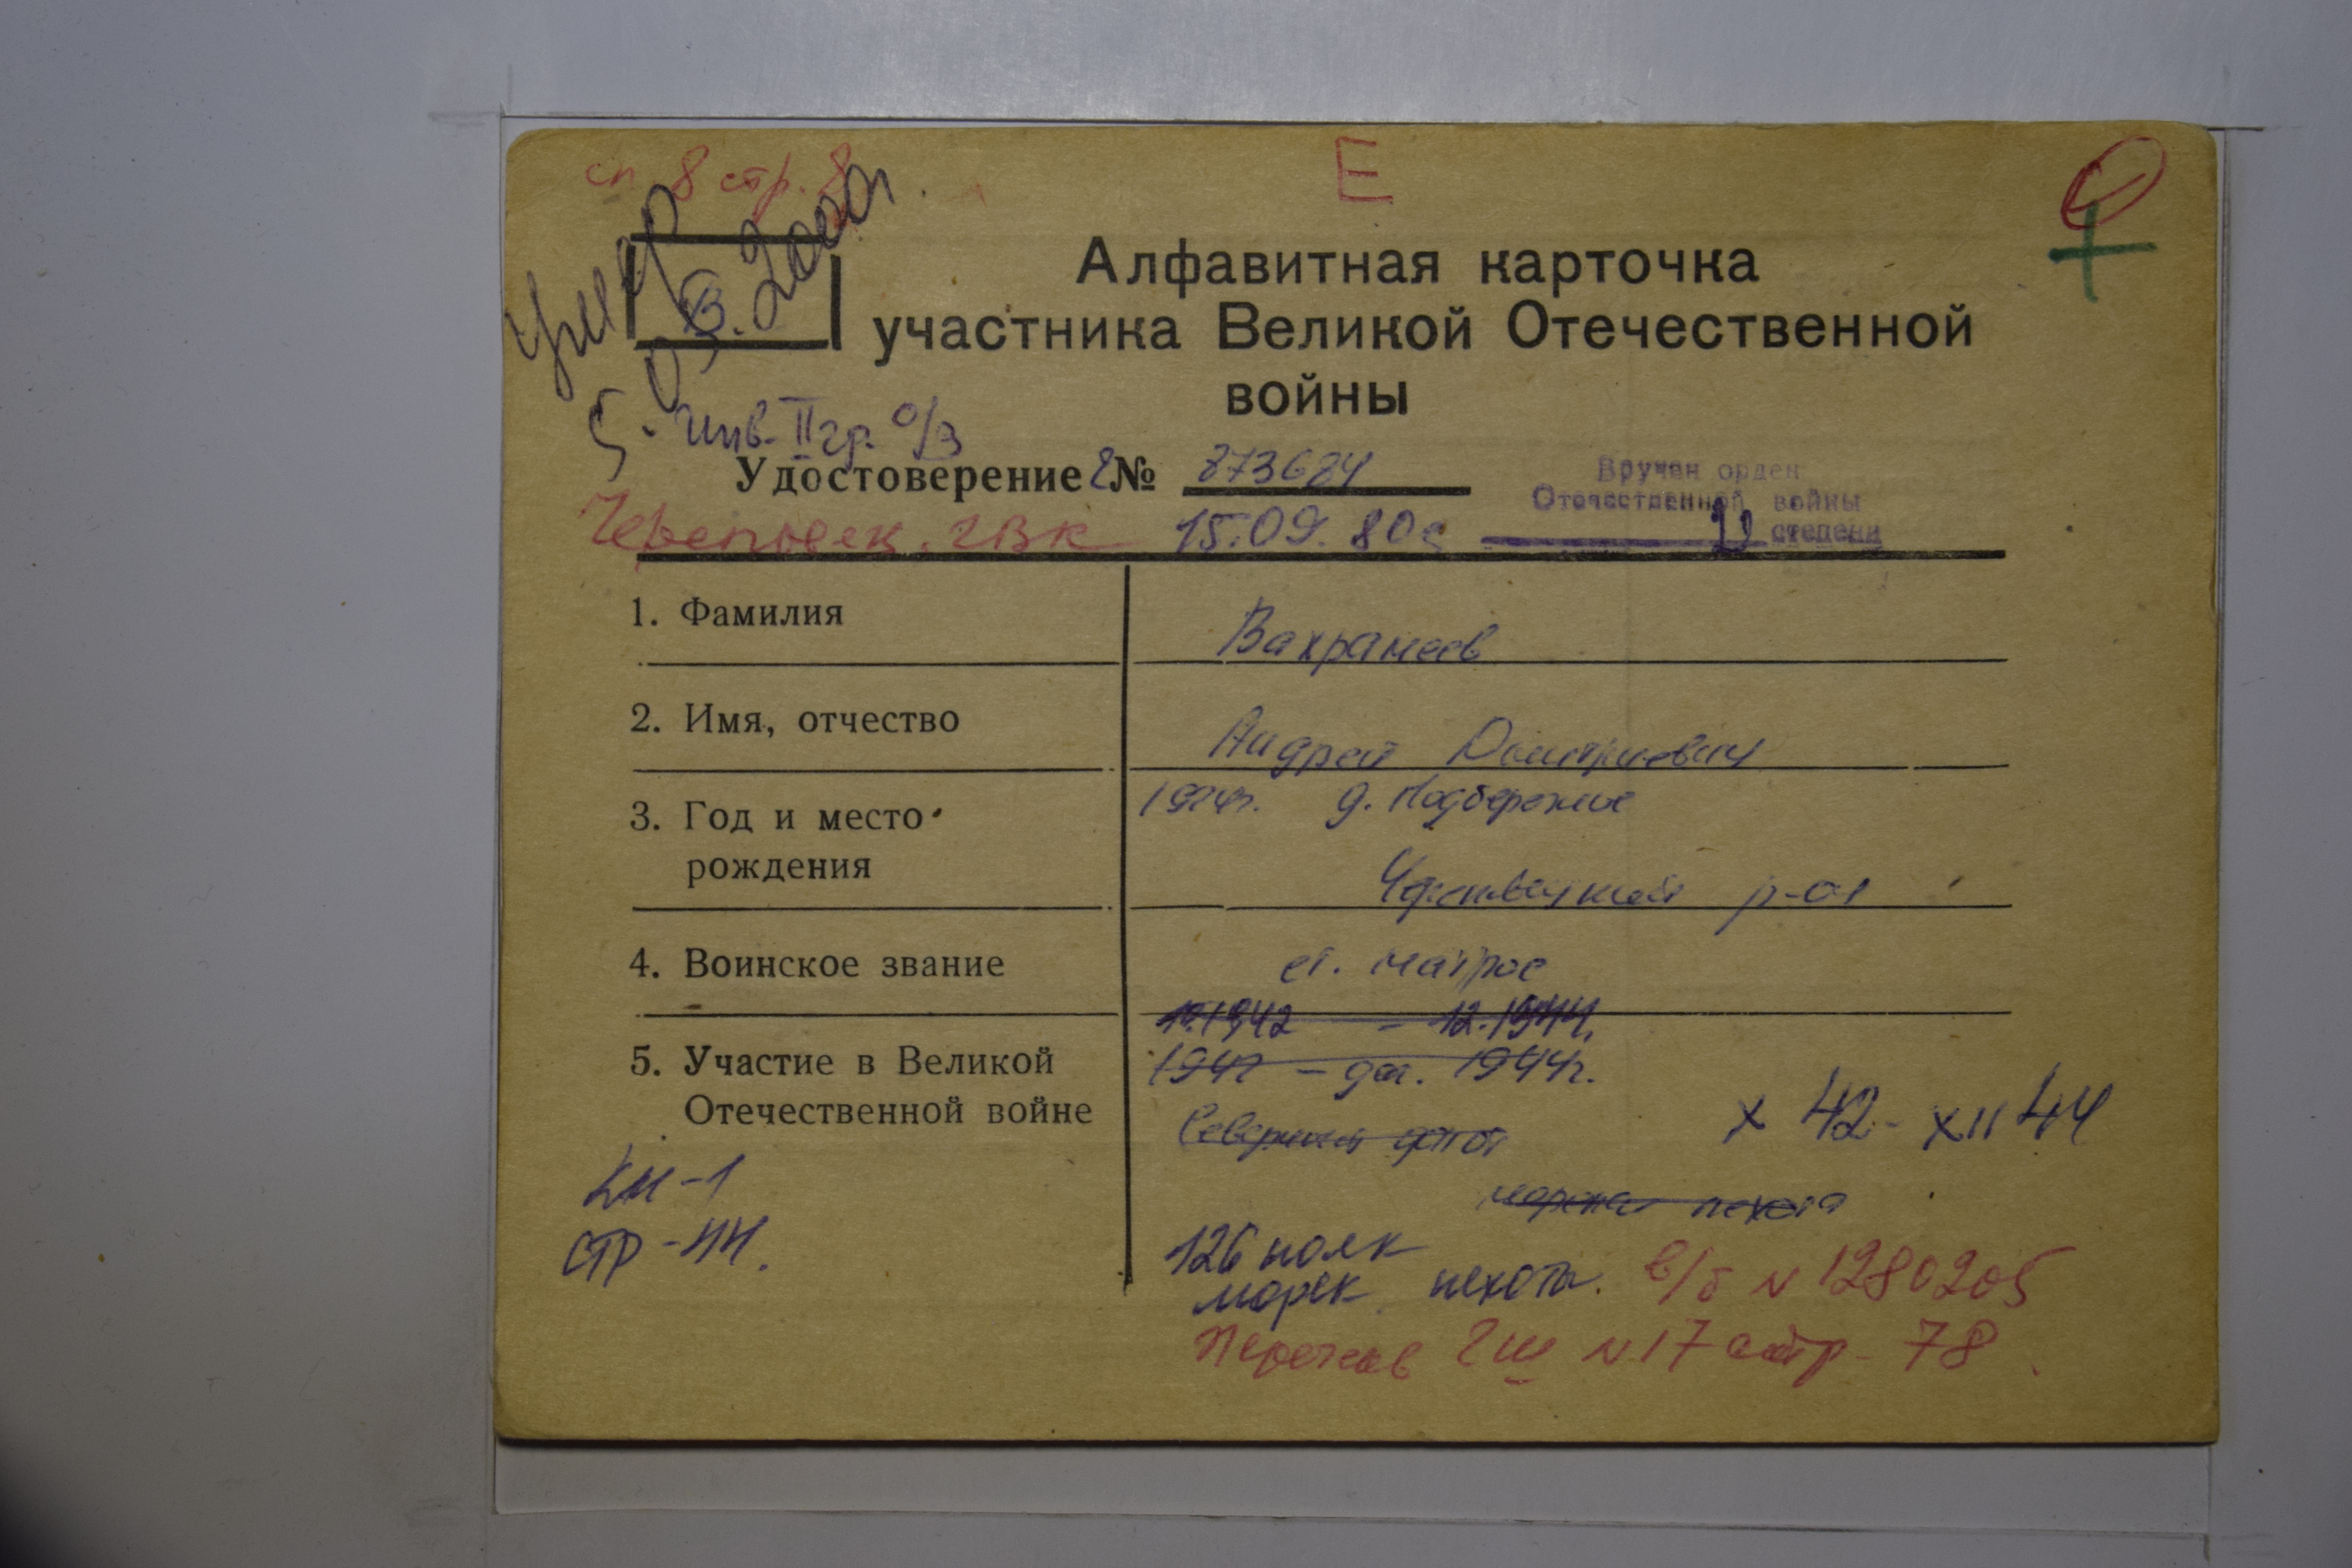 сп 8 стр. 8
Е
умер
5.03.2000г.
Алфавитная карточка
участника Великой Отечественной
войны
инв. II гр. о/з
Удостоверение № 873684
Вручен орден
Отечественной войны
II степени
Череповек. ГВК 15.09.80г
1. Фамилия
Вахрамеев
2. Имя, отчество
Андрей Дмитриевич
3. Год и место
рождения
1924г. д. Подберезье
Череповецкий р-он
4. Воинское звание
ст. матрос
10.1942 - 12.1944г.
5. Участие в Великой
Отечественной войне
1942 - дек. 1944г.
Северный флот
X 42 - XII 44
морская пехота
КН-1
СТР-44.
126 полк
морск. пехоты. в/б N 1280205
Перечнев ГШ N 17 стр - 78